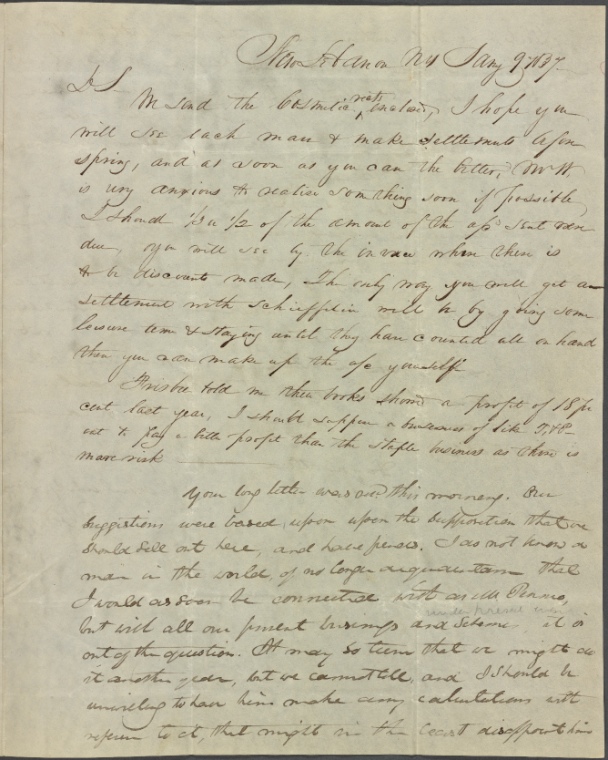 New Lebanon NY Jany 9 1837
D S
We send the Cosmetic neatly enclosed, I hope you
will see each man & make settlements before
spring, and as soon as you can the better, Mr W.
is very anxious to realise something soon if possible,
I should 1/3 or 1/2 of the amount of the a/cs sent was
due, you will see by the invoice where there is
to be discounts made, The only way you will get an
settlement with Schieffelin will be by going some
leisure time & staying until they have counted all on hand
then you can make up the a/c yourself
Frisbee told me their books showed a profit of 18 per
cent last year, I should suppose a business of like
out to pay a better profit than the staple business as there is
more risk
Your long letter was recd this morning. Our
suggestions were based upon upon the supposition that we
should sell out here, and have funds. I do not know a
man in the world, of no longer acquaintance that
I would as soon be connected with as Mr
under present
but with all our present business and schemes it is
out of the question. It may so turn that we might do
it another year, but we cannot tell, and I should be
unwilling to have him make any calculations with
reference to it, that might in the least disappoint him